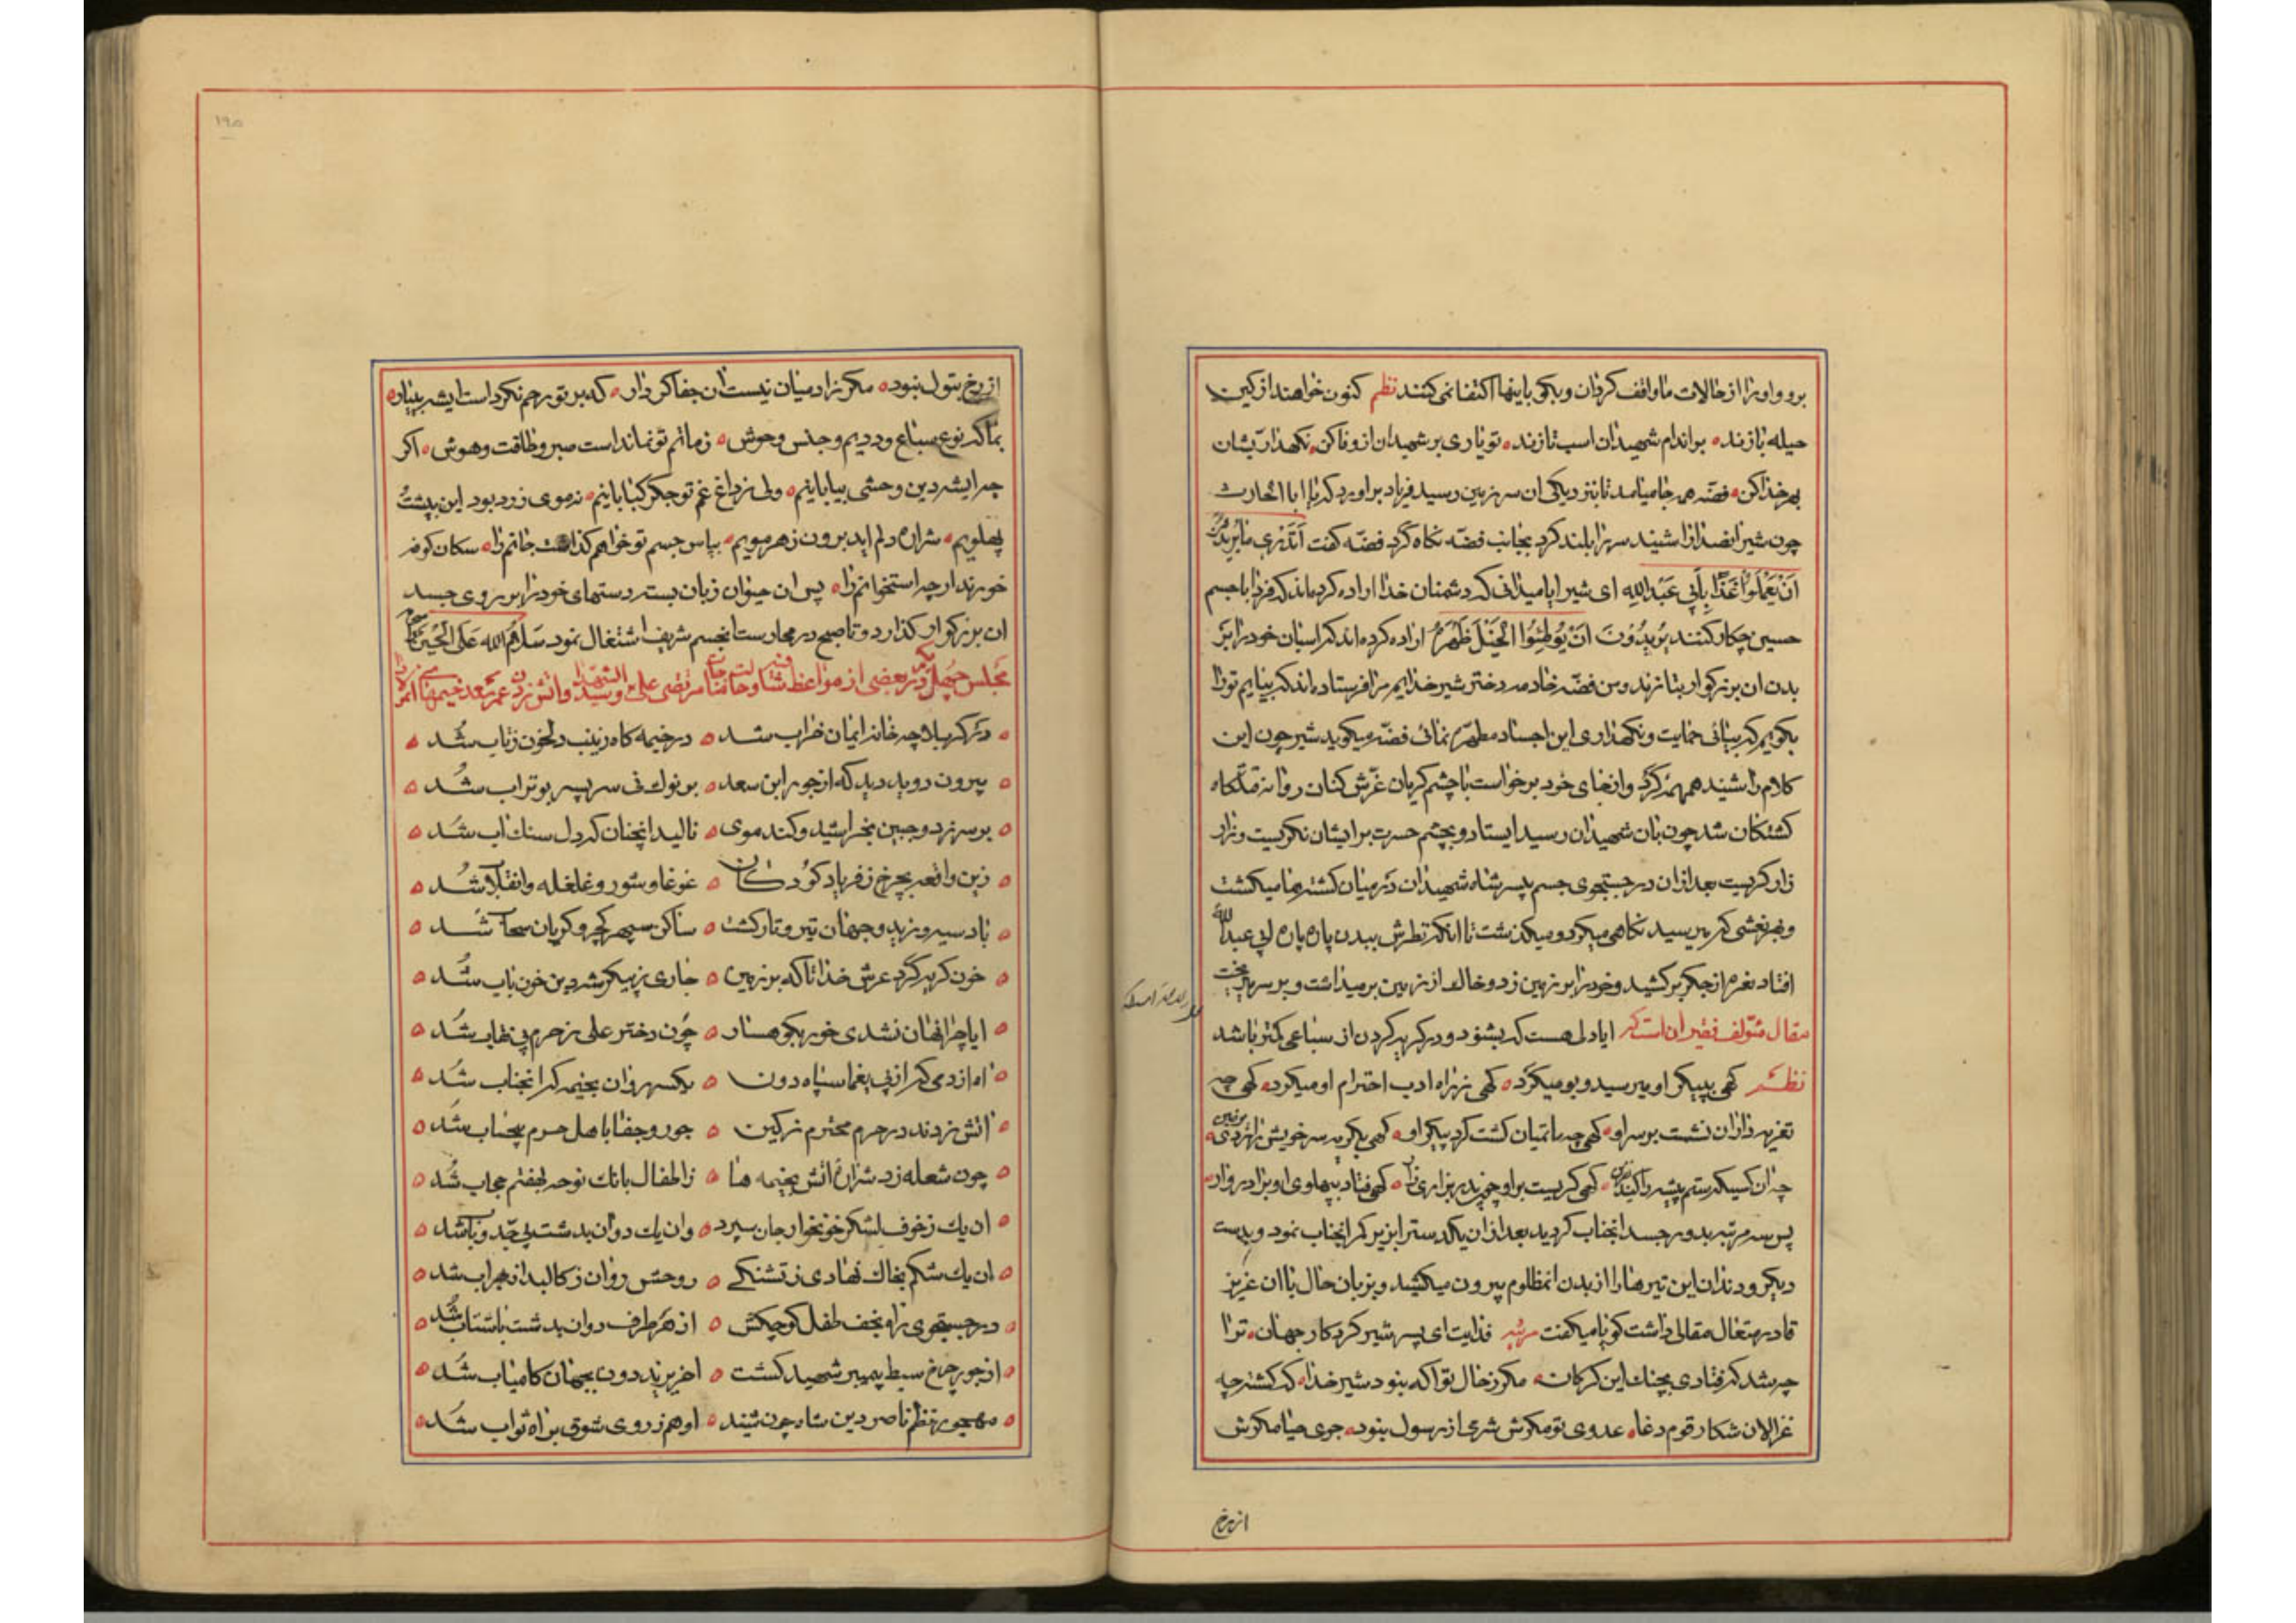 برو و او را از حالات ما واقف کردان و بکو باینها اکتفا نمی کنند نظم کنون خواهند از کین
حیله بازند براندام شهیدان اسب تازند تو یاری بر شهیدان از وفا کن نکهداریشان
بهر خدا کن فضه همه جا میامد تا بنزدیکی ان سرزمین رسید فریاد براورد که یا ابا الحارث
چون شیر انصدا را شنید سر را بلند کرد بجانب فضه نکاه کرد فضه کفت اتدری ما یریدون
ان یعملوا غدا بابی عبدالله ای شیر ایا میدانی که دشمنان خدا اراده کرده اند که فردا با جسم
حسین چکار کنند یریدون ان یوطئوا الخیل ظهره اراده کرده اند که اسبان خود را بر
بدن ان بزرکوار بتازند و من فضه خادمه دختر شیر خدایم مرا فرستاده اند که بیایم تو را
بکویم که بیائی حمایت و نکهداری این اجساد مطهره نمائی فضه میکوید شیر چون این
کلام را شنید همهمه کرد و از جای خود برخواست با چشم کریان غرش کنان روانه قتلکاه
کشتکان شد چون بان شهیدان رسید ایستاد و بچشم حسرت برایشان نکریست و زار
زار کریست بعد از ان در جستجوی جسم پسر شاه شهیدان در میان کشته ها میکشت
و بهر نعشی که میرسید نکاهی میکرد و میکذشت تا انکه نظرش ببدن پاره پاره ابی عبدالله
افتاد نعره از جکر برکشید و خود را بر زمین زد و خاک از زمین برمیداشت و بر سر میریخت
مقال مؤلف فقیر ان است که ایا دلی هست که بشنود و در کریه کردن از سباعی کمتر باشد
نظم کهی بپیکر او میرسید و بو میکرد کهی ز راه ادب احترام او میکرد کهی چه
تعزیه داران نشست بر سر او کهی چه ماتمیان کشت کرد پیکر او کهی بکریه سر خویش را بزد بزمین
چه ان کسیکه ستم پیشه را کند نفرین کهی کریست بر او چون پدر بزاری زار کهی فتاد بپهلوی او برادروار
پس سه مرتبه بدور جسد انجناب کردید بعد از ان یکدست را بزیر کمر انجناب نمود و بدست
دیکر و دندان این تیرها را از بدن انمظلوم بیرون میکشید و بزبان حال با ان عزیز
قادر متعال مقالی داشت کویا میکفت مرثیه فدایت ای پسر شیر کردکار جهان ترا
چه شد که فتادی بچنک این کرکان مکر ز حال تو اکه نبود شیر خدا که کشته چه
غزالان شکار قوم دغا عدوی تو مکرش شرمی از رسول نبود جوی حیا مکرش
از رخ
از رخ بتول نبود مکر نزار میان نیست ان جفا کردار که بر تو رحم نکرد است ایشه بییار
بماکه نوع سباع و ددیم و جنس وحوش ز ماتم تو نمانداست صبر و طاقت و هوش اکر
چه ایشه دین وحشی بیابانیم ولی ز داغ غم تو جکر کبابانیم ز موی زرد بود این پشت
پهلویم شراره دلم اید برون ز هر مویم بپاس جسم تو خواهم کذاشت جانم را سکان کوفه
خورند ار چه استخوانم را پس ان حیوان زبان بسته دستهای خود را بر روی جسد
ان بزرکوار کذارد و تا صبح در محارست انجسم شریف اشتغال نمود سلام الله علی الحسین
مجلس چهل و یکم در بعضی از مواعظ شافیه و حالت جناب مرتضی علی و سید الشهدا و اتش زدن عمر سعد خیمها
در کربلا چه خانه ایمان خراب شد در خیمه کاه زینب دلخون ز تاب شد
بیرون دوید دید که از جور ابن سعد بر نوک نی سر پسر بوتراب شد
بر سر زد و جبین بخراشید و کند موی نالید انچنان که دل سنک اب شد
زین واقعه بچرخ ز فریاد کودکان غوغا و شور و غلغله و انقلاب شد
باد سیه وزید و جهان تیره و تار کشت ساکن سپهر کجرو و کریان سحاب شد
خون کریه کرد عرش خدا تا که بر زمین جاری ز پیکر شه دین خون ناب شد
ایا چرا نهان نشدی خور بکوهسار چون دختر علی ز حرم بی نقاب شد
اه از دمی که از پی یغما سپاه دون یکسر روان بخیمه که انجناب شد
اتش زدند در حرم محترم ز کین جور و جفا باهل حرم بیحساب شد
چون شعله زد شراره اتش بخیمه ها ز اطفال بانک نوحه بهفتم حجاب شد
ان یک ز خوف لشکر خونخوار جان سپرد وان یک دوان بدشت بی حد و باب شد
ان یک شکم بخاک نهادی ز تشنکی روحش روان ز کالبد از هر اب شد
در جستجوی زاده نجف طفل کوچکش از هر طرف دوان بدشت باشتاب شد
از جور چرخ سبط پیمبر شهید کشت اخر یزید دون بجهان کامیاب شد
مهجور نظم ناصر دین شاه چون شنید او هم ز روی شوق براه ثواب شد
۱۹۵